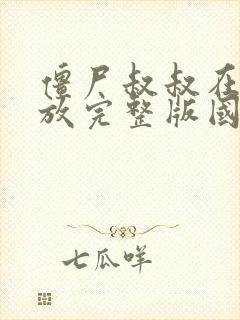 僵尸叔叔在
放完整版国
七瓜咩